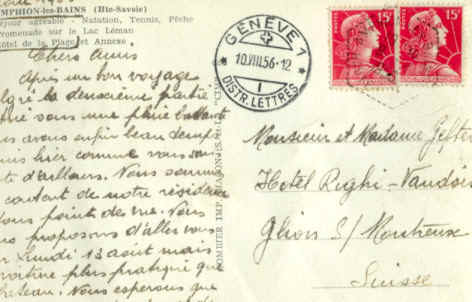 AMPHION-les-BAINS (Hte-Savoie)
éjour agréable - Natation, Tennis, Pêche
Promenade sur le Lac Léman
Hôtel de la Plage et Annexe
Chers Amis
Après un bon voyage
lgré la deuxième partie
sous une pluie battante
us avons enfin beau temps
hier comme vous
d'ailleurs. Nous sommes
content de notre résidence
tous points de vue. Nous
us proposons d'aller vous
r Lundi 13 août mais
voiture plus pratique que
bateau. Nous espérons que
GENÈVE 1
10.VIII.56-12
1
DISTR. LETTRES
15F
15F
Monsieur et Madame
Hotel Righi-Vaudois
Glion s/ Montreux
Suisse